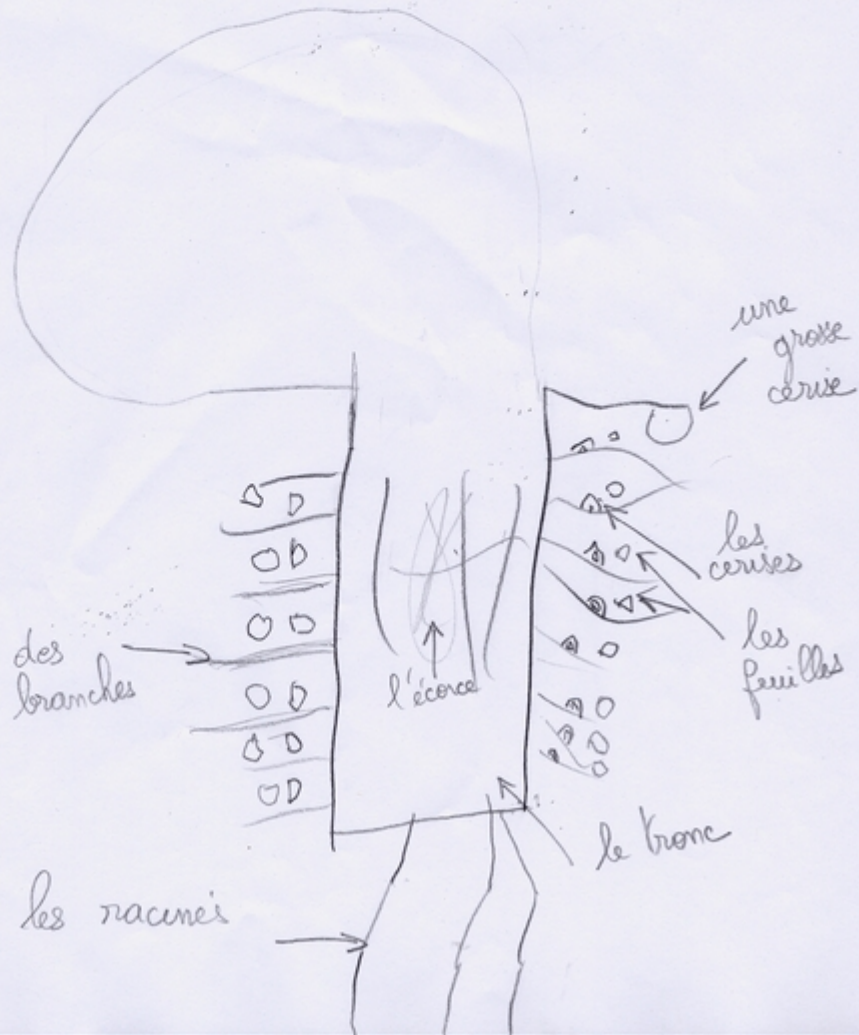 une
grosse
cerise
les
cerises
des
branches
les
feuilles
l'écorce
le tronc
les racines